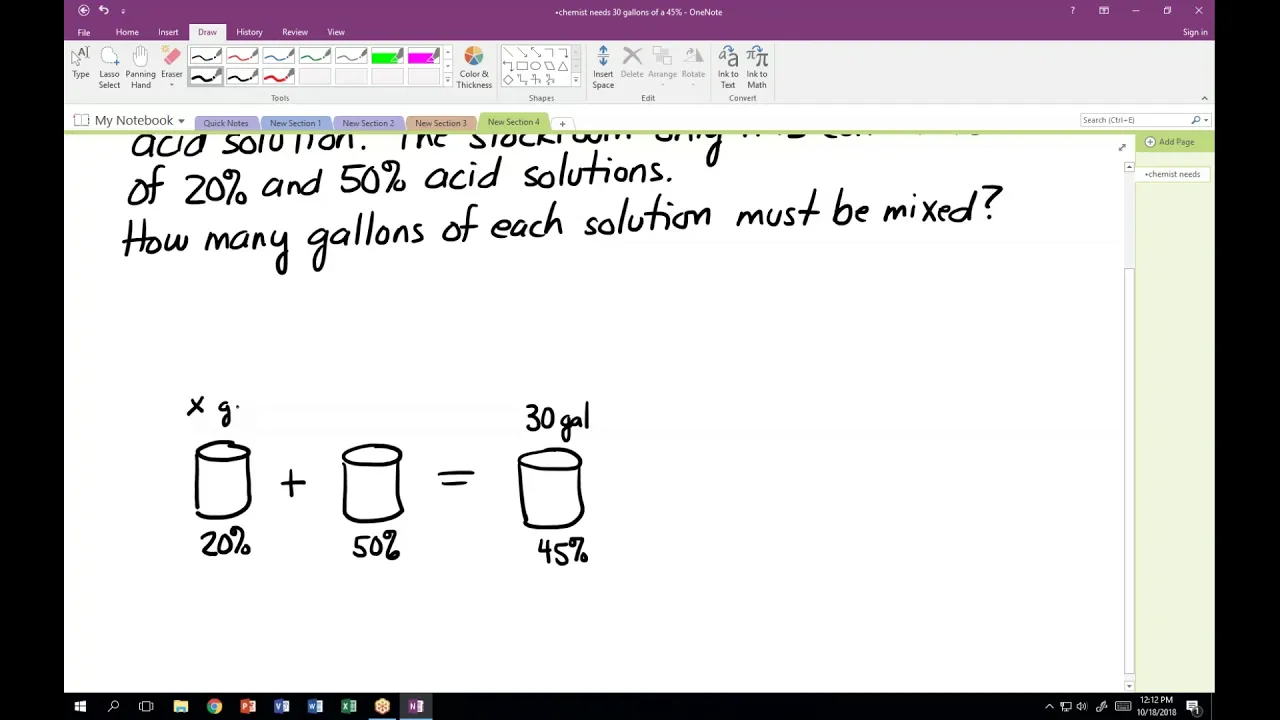 •chemist needs 30 gallons of a 45% - OneNote
File Home Insert Draw History Review View
Sign in
Type
Lasso Select
Panning Hand
Eraser
Color & Thickness
Insert Space
Delete
Arrange
Rotate
Ink to Text
Ink to Math
Tools Shapes Edit Convert
My Notebook Quick Notes New Section 1 New Section 2 New Section 3 New Section 4
Search (Ctrl+E)
Add Page
•chemist needs
acid solution. The stockroom only has
of 20% and 50% acid solutions.
How many gallons of each solution must be mixed?
x g. 30 gal
+ =
20% 50% 45%
12:12 PM
10/18/2018